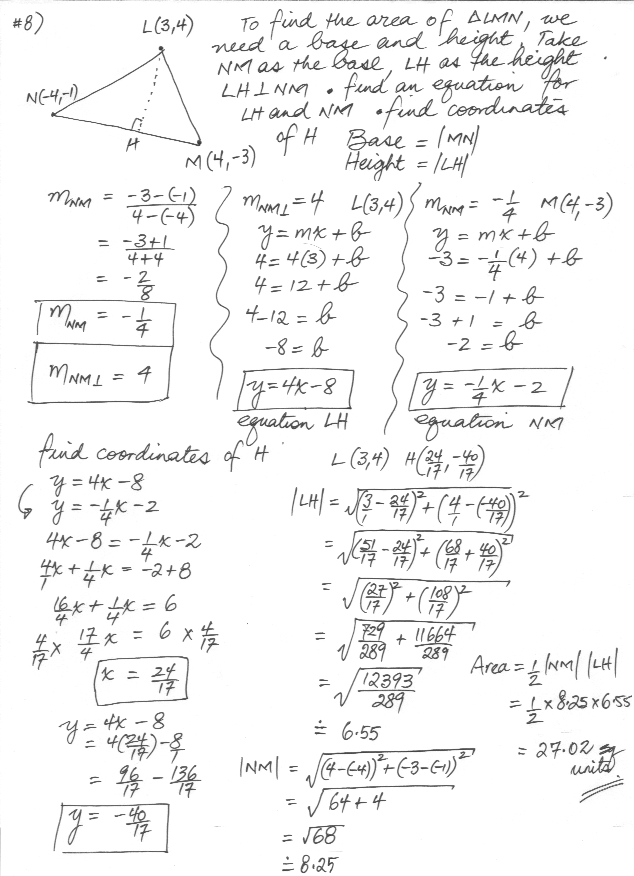 #8)
L(3,4)
N(-4,-1)
H
M(4,-3)
To find the area of △LMN, we
need a base and height. Take
NM as the base, LH as the height.
LH ⊥ NM • find an equation for
LH and NM • find coordinates
of H
Base = |MN|
Height = |LH|
m_NM = (-3-(-1))/(4-(-4))
= (-3+1)/(4+4)
= -2/8
m_NM = -1/4
m_NM⊥ = 4
m_NM⊥ = 4 L(3,4)
y = mx + b
4 = 4(3) + b
4 = 12 + b
4-12 = b
-8 = b
y = 4x - 8
equation LH
m_NM = -1/4 M(4,-3)
y = mx + b
-3 = -1/4(4) + b
-3 = -1 + b
-3 + 1 = b
-2 = b
y = -1/4x - 2
equation NM
find coordinates of H
y = 4x - 8
y = -1/4x - 2
4x - 8 = -1/4x - 2
4/1x + 1/4x = -2+8
16/4x + 1/4x = 6
4/17 × 17/4x = 6 × 4/17
x = 24/17
y = 4x - 8
= 4(24/17) - 8/1
= 96/17 - 136/17
y = -40/17
L(3,4) H(24/17, -40/17)
|LH| = √((3/1 - 24/17)² + (4/1 - (-40/17))²)
= √((51/17 - 24/17)² + (68/17 + 40/17)²)
= √((27/17)² + (108/17)²)
= √(729/289 + 11664/289)
= √(12393/289)
≐ 6.55
|NM| = √((4-(-4))² + (-3-(-1))²)
= √(64 + 4)
= √68
≐ 8.25
Area = 1/2 |NM| |LH|
= 1/2 × 8.25 × 6.55
= 27.02 sq
units